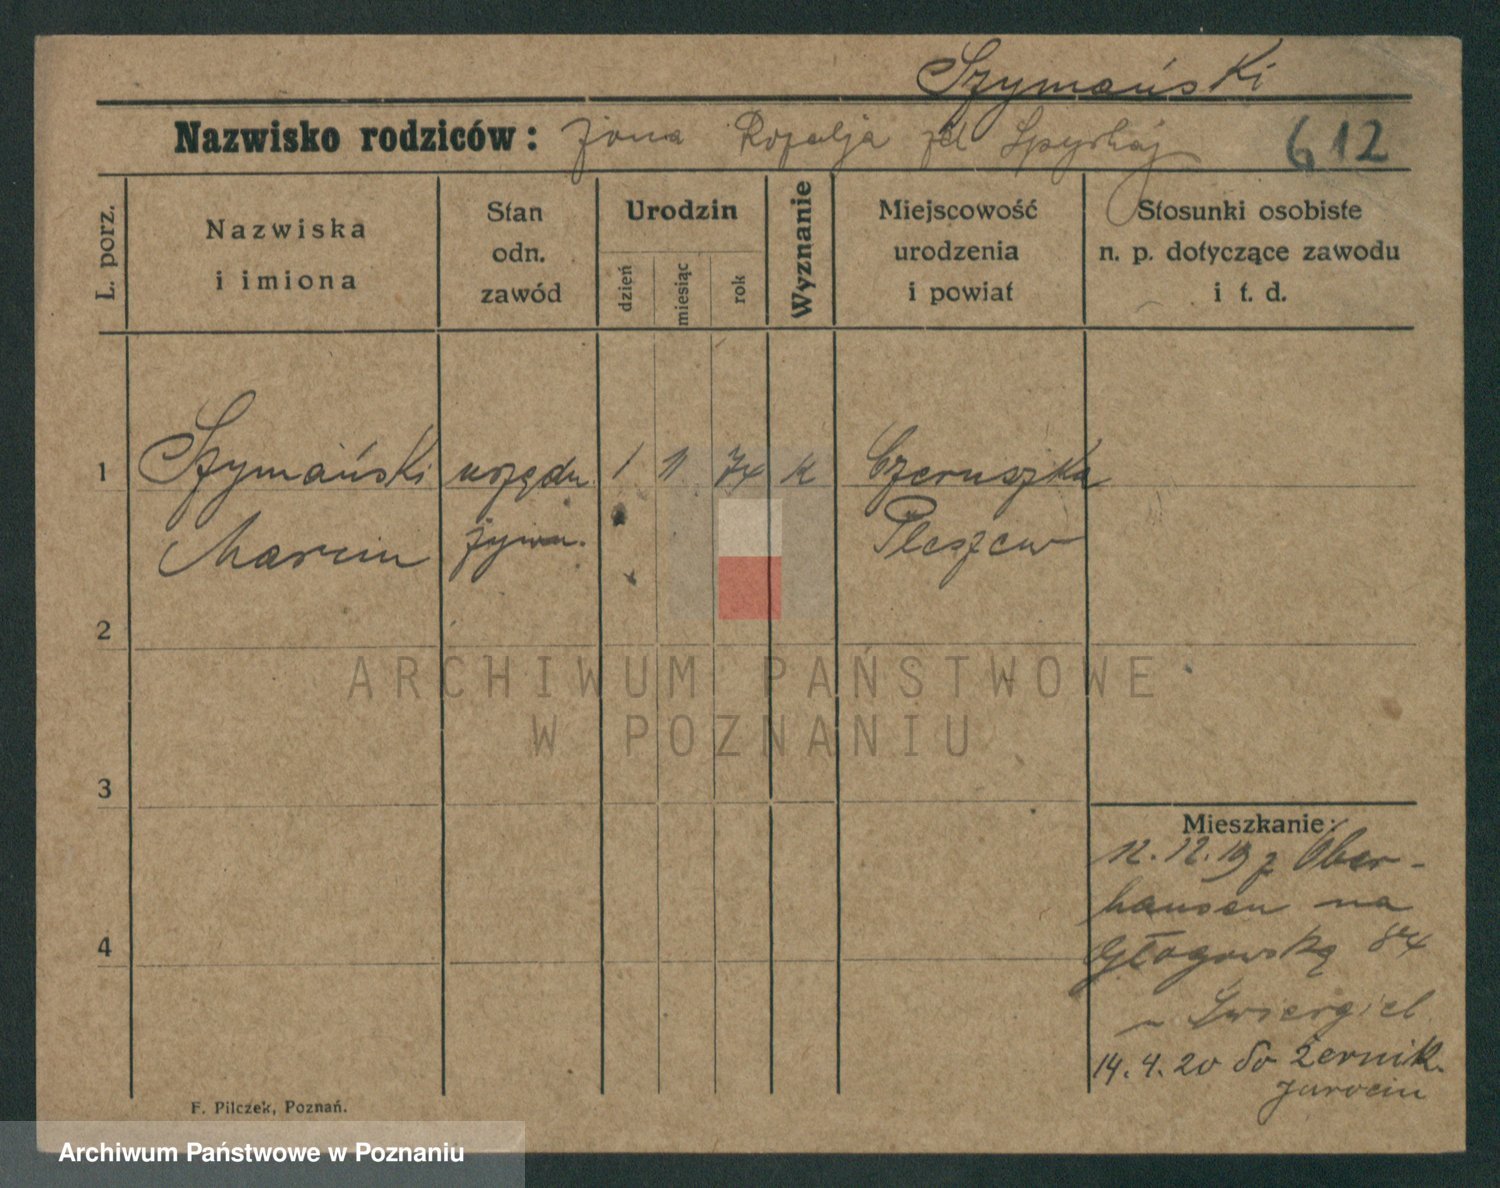 Szymański
Nazwisko rodziców: żona Rozalja
612
L. porz.
Nazwiska
i imiona
Stan
odn.
zawód
Urodzin
dzień
miesiąc
rok
Wyznanie
Miejscowość
urodzenia
i powiat
Stosunki osobiste
n. p. dotyczące zawodu
i t. d.
1 Szymański urzędn. 1 11 74 k Czeruszka
Marcin żywn. Pleszew
2
ARCHIWUM PAŃSTWOWE
W POZNANIU
3
4
Mieszkanie:
12.12.19 z Ober-
hausen na
Głogowską 84
Świergiel
14.4.20 do Żernik.
Jarocin
F. Pilczek, Poznań.
Archiwum Państwowe w Poznaniu